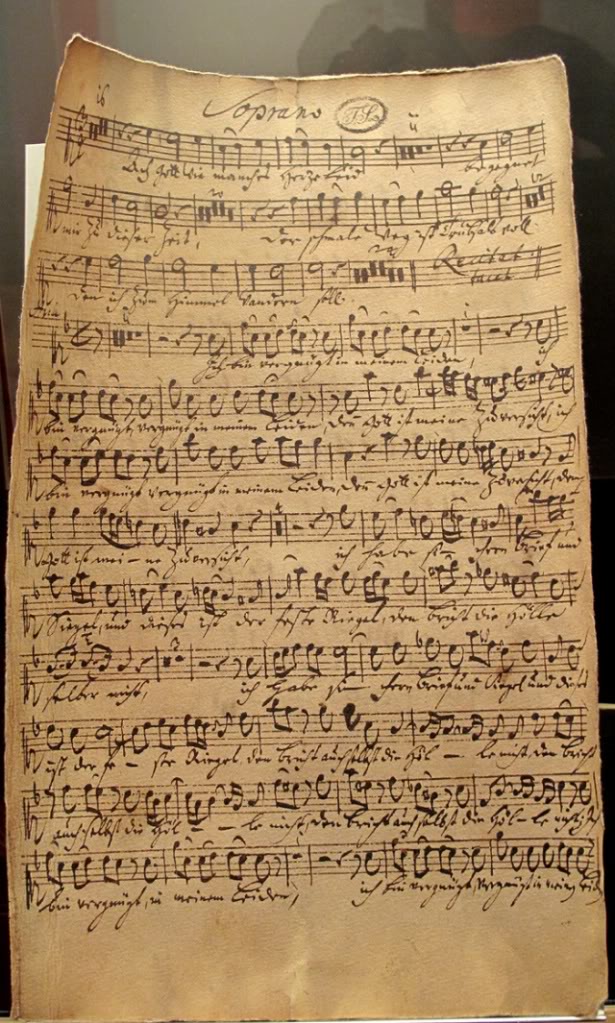 16 Soprano
Ach Gott wie manches Hertzeleid begegnet
mir zu dieser Zeit, Der schmale Weg ist Trübsals voll.
Recitat
tacet
den ich zum Himmel wandern soll.
Ich bin vergnügt in meinem Leiden, ich
bin vergnügt, vergnügt in meinem Leiden, den Gott ist meine Zuversicht, ich
bin vergnügt vergnügt in meinem Leiden, den Gott ist meine Zuversicht, den
Gott ist mei - ne Zuversicht, ich habe Brief und
Siegel, und dieses ist der feste Riegel, den bricht die Hölle
selber nicht, ich habe Brief und Siegel und dieses
ist der fe - ste Riegel, den bricht auch selbst die Höl - le nicht, den bricht
auch selbst die Höl - - le nicht, den bricht auch selbst die Höl - le nicht,
bin vergnügt, in meinem Leiden, ich bin vergnügt, vergnügt in